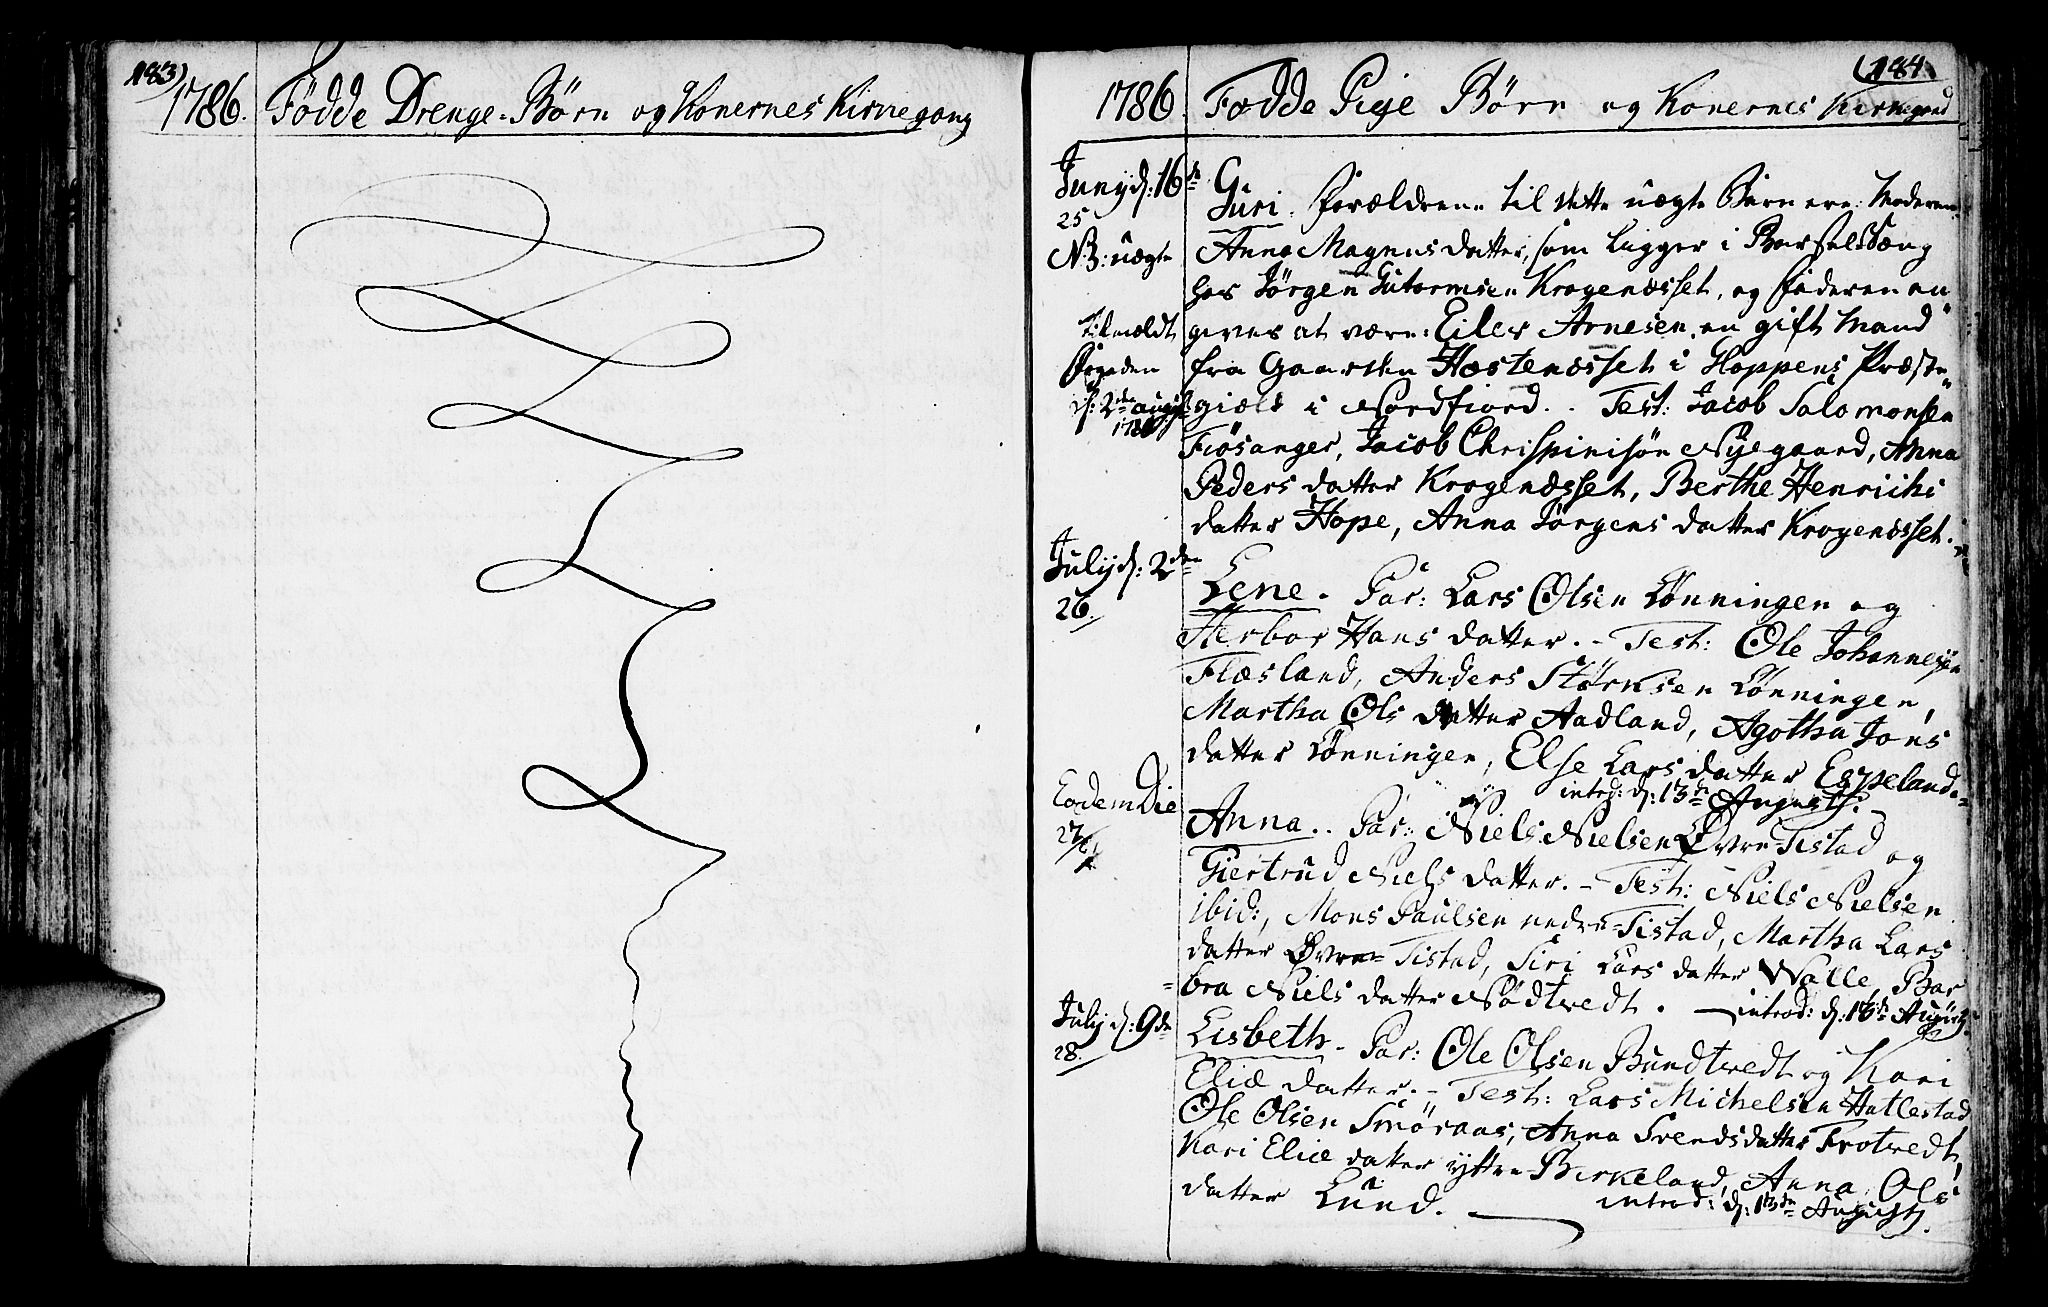 183)
1786. Födde Drenge-Børn og Konernes Kirnegang
(184
1786. Fødde Pige Børn og Konernes Kirnegand
Juny d: 16de
25
NB: uægte
tilmældt
Fogeden
d: 2den august
1786
Guri. Forældrene til dette uægte Barn ere: Moderen
Anna Magnus datter, som ligger i Barselseng
hos Jørgen Gutormsen Krogenæsset, og Faderen an
gives at være: Eiler Arnesen en gift Mand
fra Gaarden Hæstenæsset i Hoppens Præste
gield i Nordfiord. - Test: Jacob Salomonsen
Fiøsanger, Jacob Chrispinisøn Nyegaard, Anna
Peders datter Krogenæsset, Berthe Henrichs
datter Hope, Anna Jørgens datter Krogenæsset.
July d: 2den
26.
Lene. Par: Lars Olsen Lønningen og
Herbor Hans datter. - Test: Ole Johannesen
Flæsland, Anders Størksen Lønningen,
Martha Ols datter Aadland, Agotha Jons
datter Lønningen, Else Lars datter Espeland.
introd: d: 13de Augusti.
Eodem Die
27
Anna.. Par: Niels Nielsen Øvre-Tistad og
Giertrud Niels datter. - Test: Niels Nielsen
ibid:, Mons Paulsen nedre-Tistad, Martha Lars
datter Øvre-Tistad, Siri Lars datter Walle, Bar
=bra Niels datter Nødtvedt. - introd: d: 13de August.
July d: 9de
28.
Lisbeth - Par: Ole Olsen Bundtvedt og Kari
Eliæ datter. - Test: Lars Michelsen Hatlestad
Ole Olsen Smøraas, Anna Svends datter Trotvedt,
Kari Eliæ datter yttre Birkeland, Anna Ols
datter Lund.
introd: d: 13de Augusti.